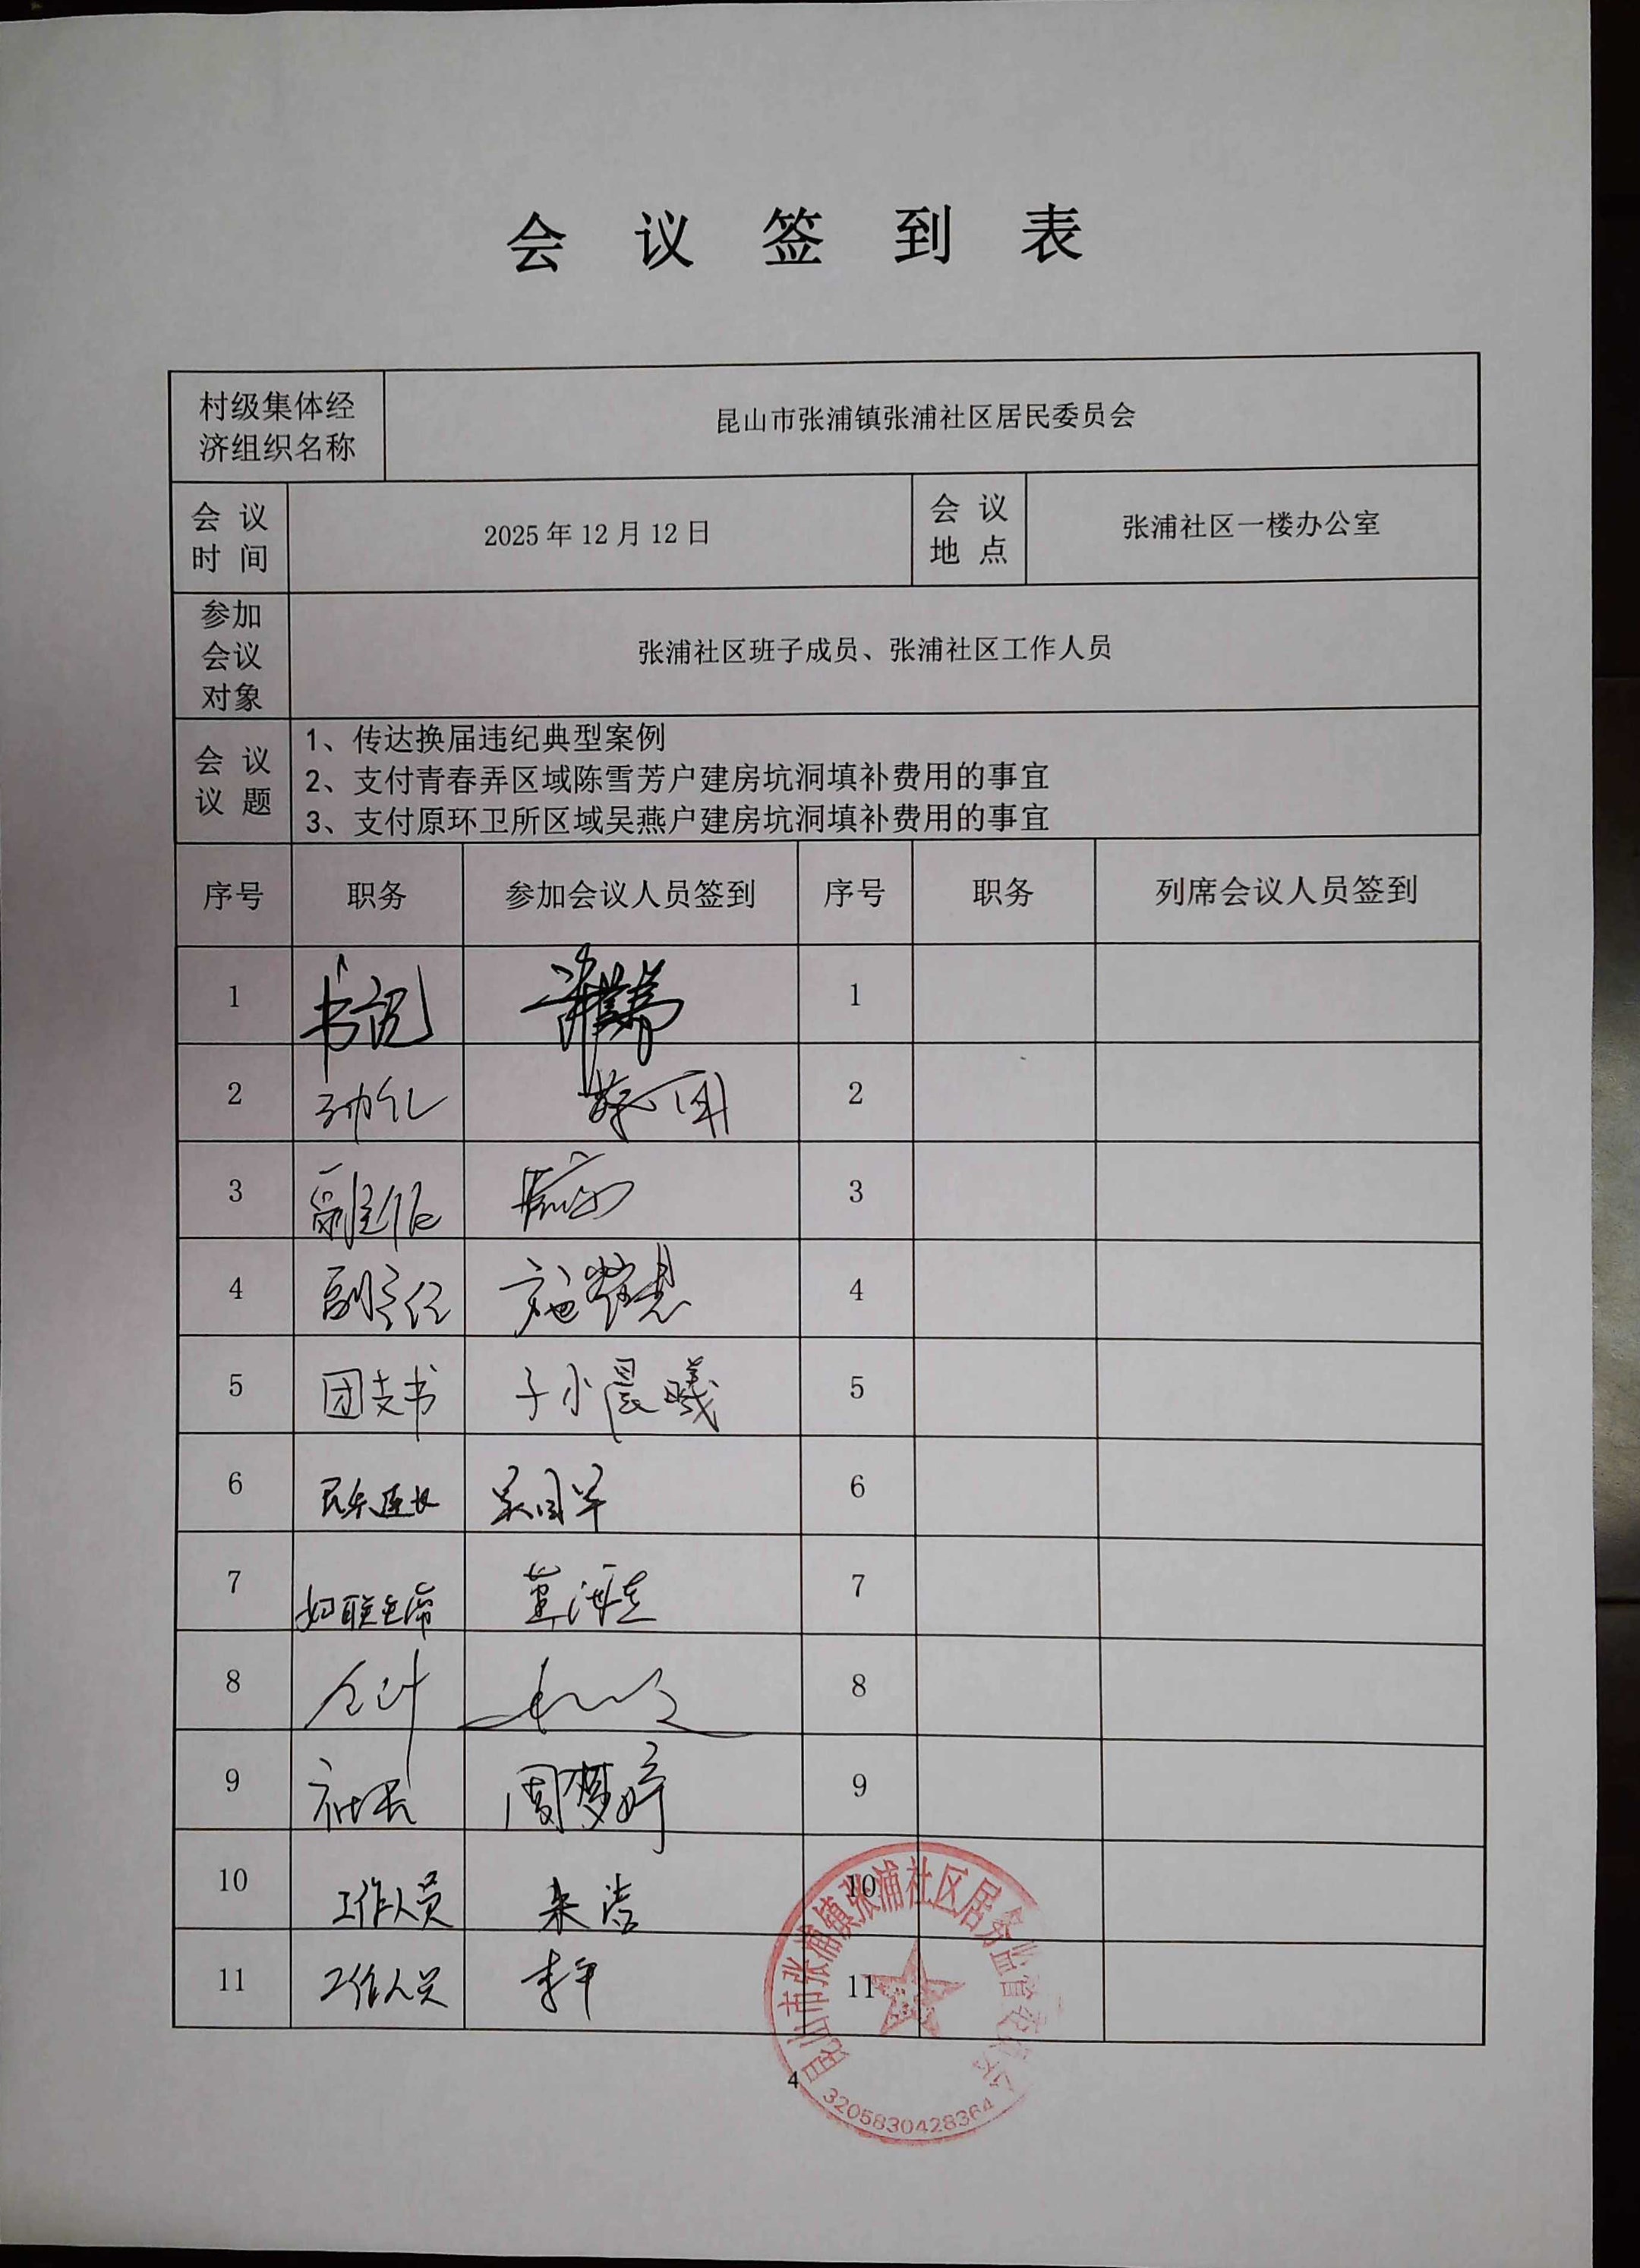 会 议 签 到 表
村级集体经
济组织名称
昆山市张浦镇张浦社区居民委员会
会 议
时 间
2025 年 12 月 12 日
会 议
地 点
张浦社区一楼办公室
参加
会议
对象
张浦社区班子成员、张浦社区工作人员
会 议
议 题
1、传达换届违纪典型案例
2、支付青春弄区域陈雪芳户建房坑洞填补费用的事宜
3、支付原环卫所区域吴燕户建房坑洞填补费用的事宜
序号 职务 参加会议人员签到 序号 职务 列席会议人员签到
1 书记 1
2 2
3 副主任 3
4 副主任 4
5 团支书 5
6 民兵连长 6
7 妇联主席 7
8 会计 8
9 周梦婷 9
10 工作人员 10
11 工作人员 李平 11
4
昆山市张浦镇张浦社区居务监督委员会
3205830428364